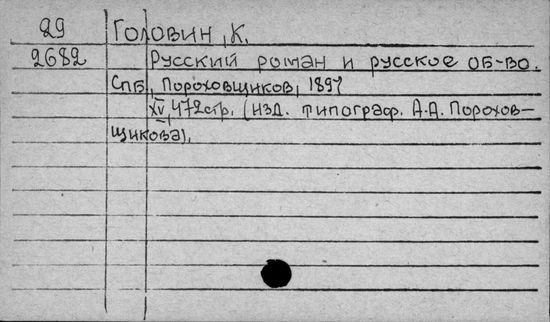 29 Головин, К.
2682 Русский роман и русское об-во.
Спб., Пороховщиков, 1897
XV, 472стр. (изд. типограф. А.А. Порохов-
щикова).